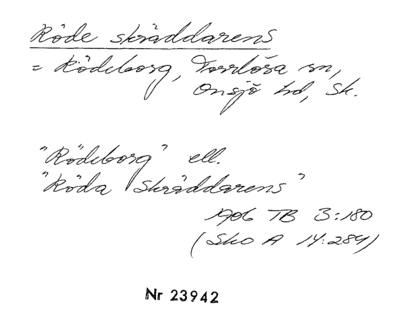 Röde skräddarens
= Rödeborg, Torrlösa sn,
Onsjö hd, Sk.
"Rödeborg" ell.
"Röda skräddarens"
1906 TB 3:180
(Sko A 14:284)
Nr 23942